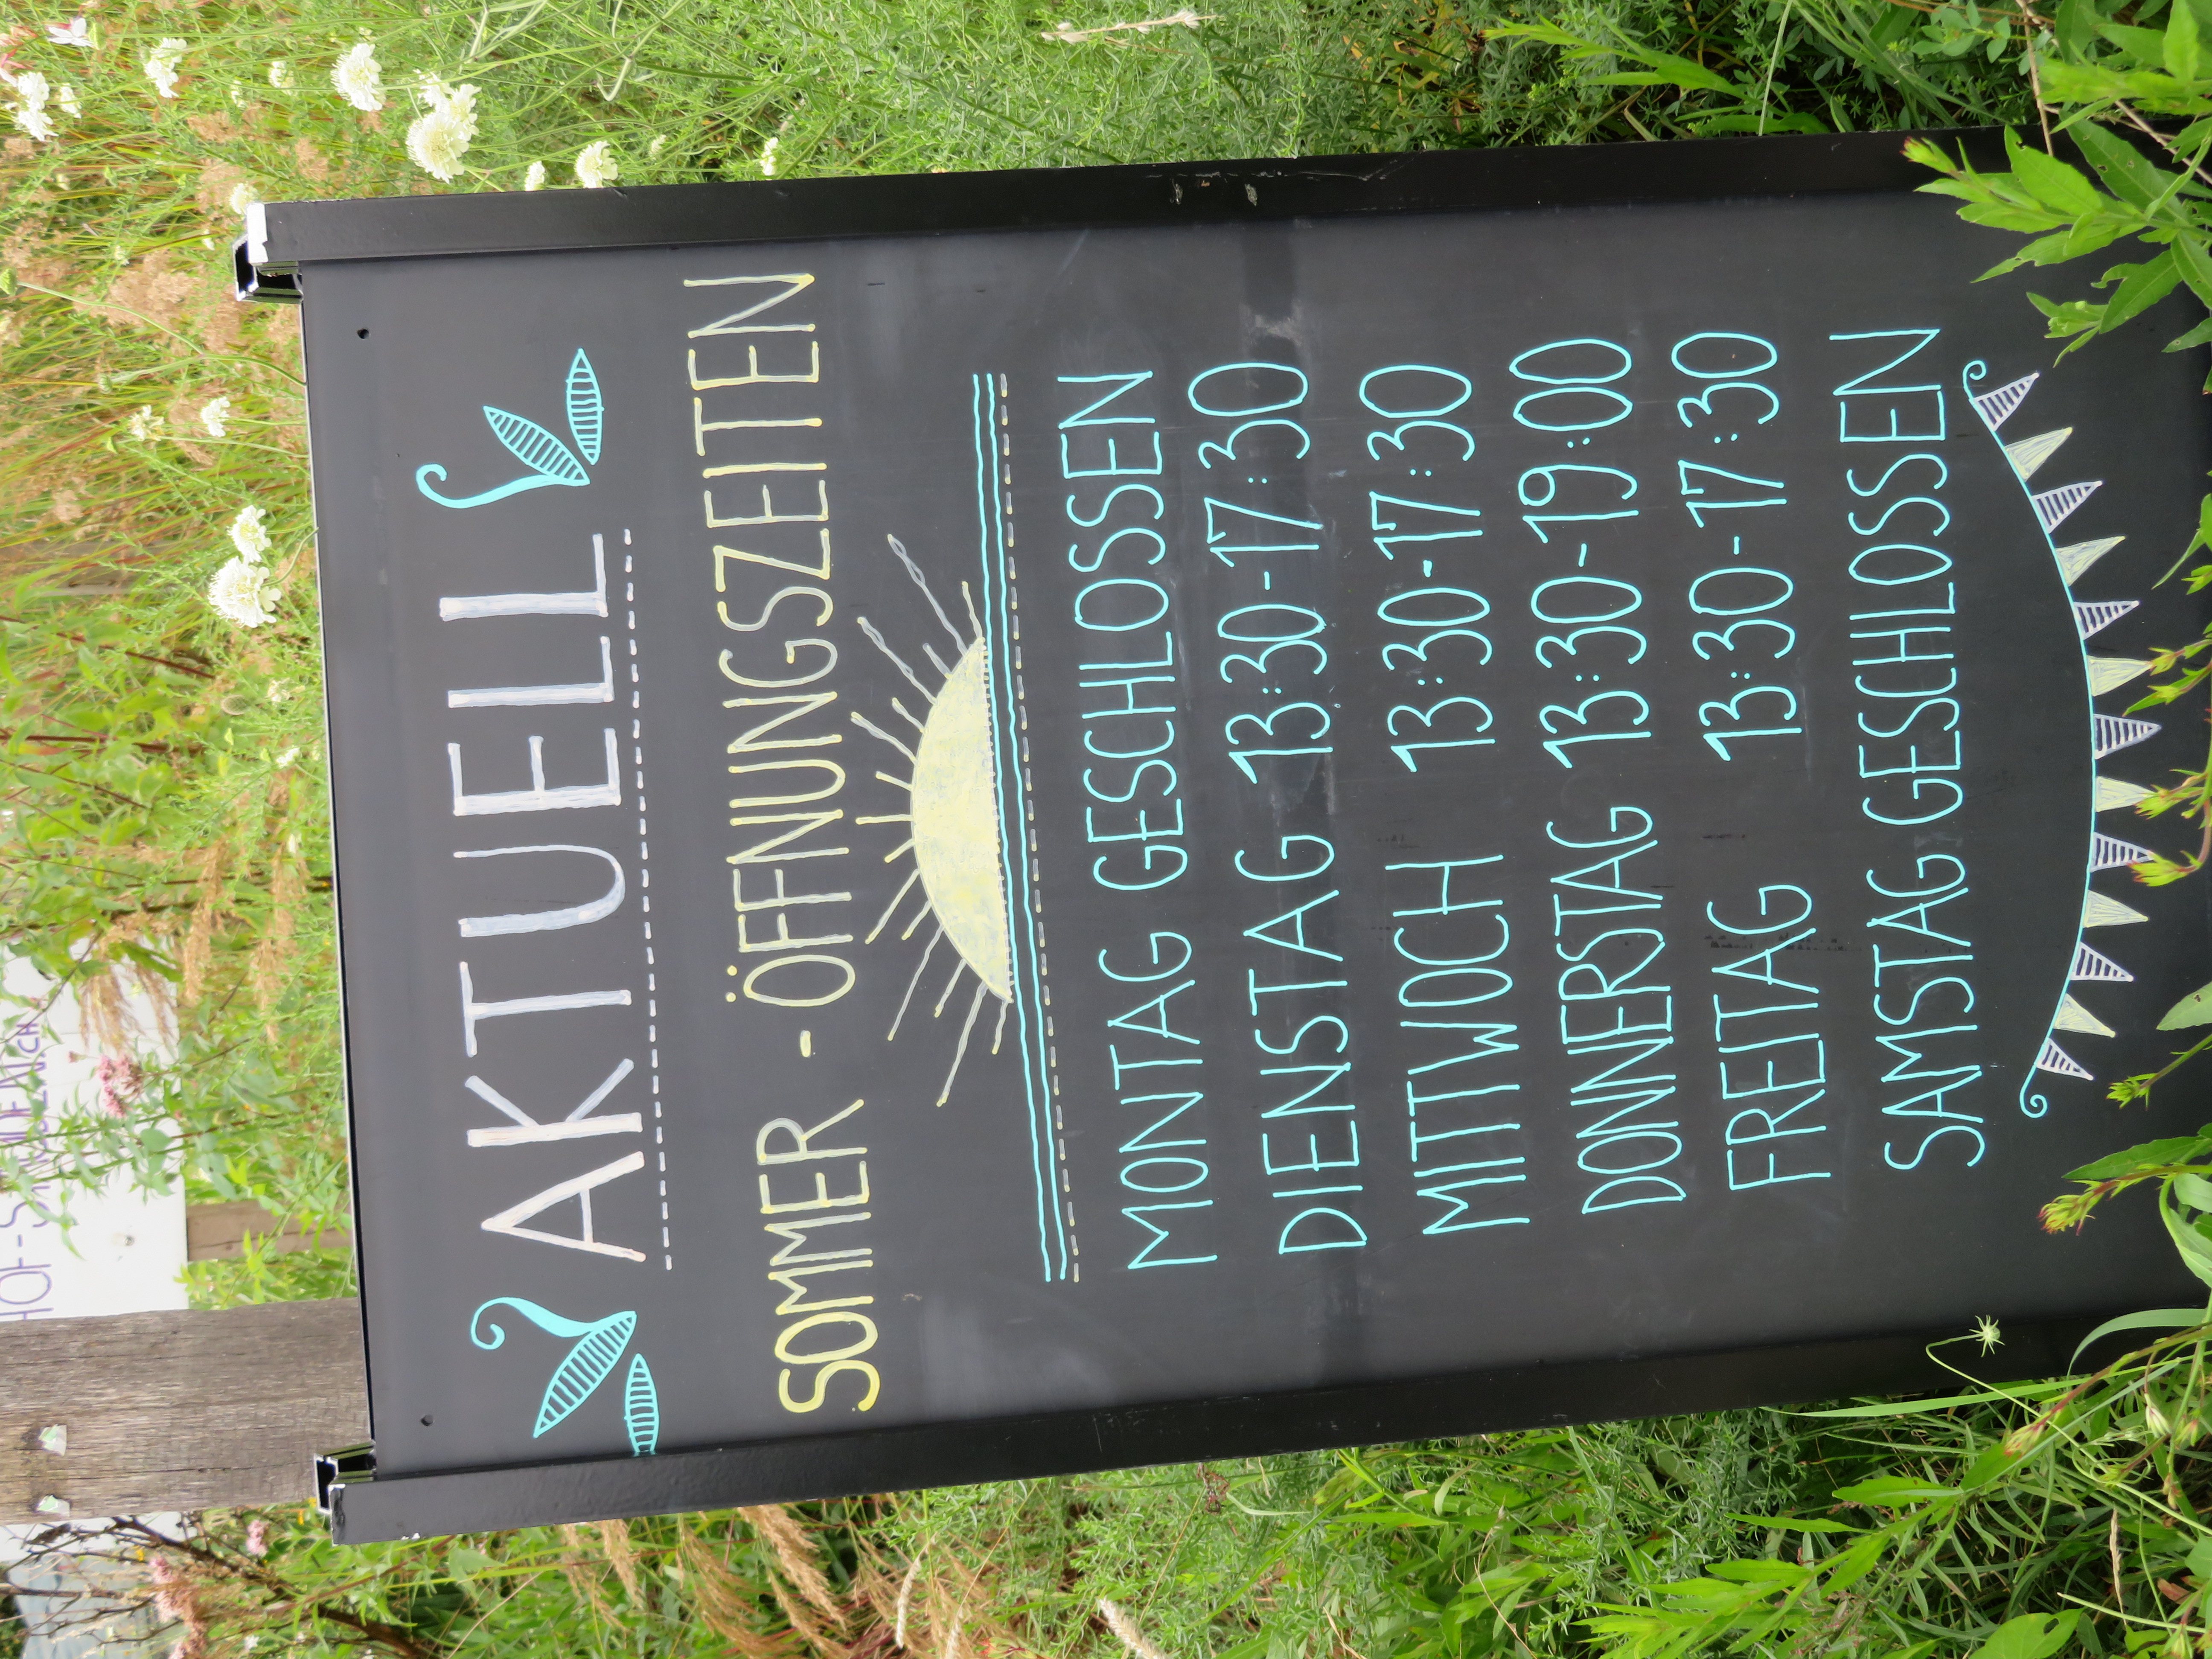 AKTUELL
SOMMER - ÖFFNUNGSZEITEN
MONTAG GESCHLOSSEN
DIENSTAG 13:30-17:30
MITTWOCH 13:30-17:30
DONNERSTAG 13:30-19:00
FREITAG 13:30-17:30
SAMSTAG GESCHLOSSEN